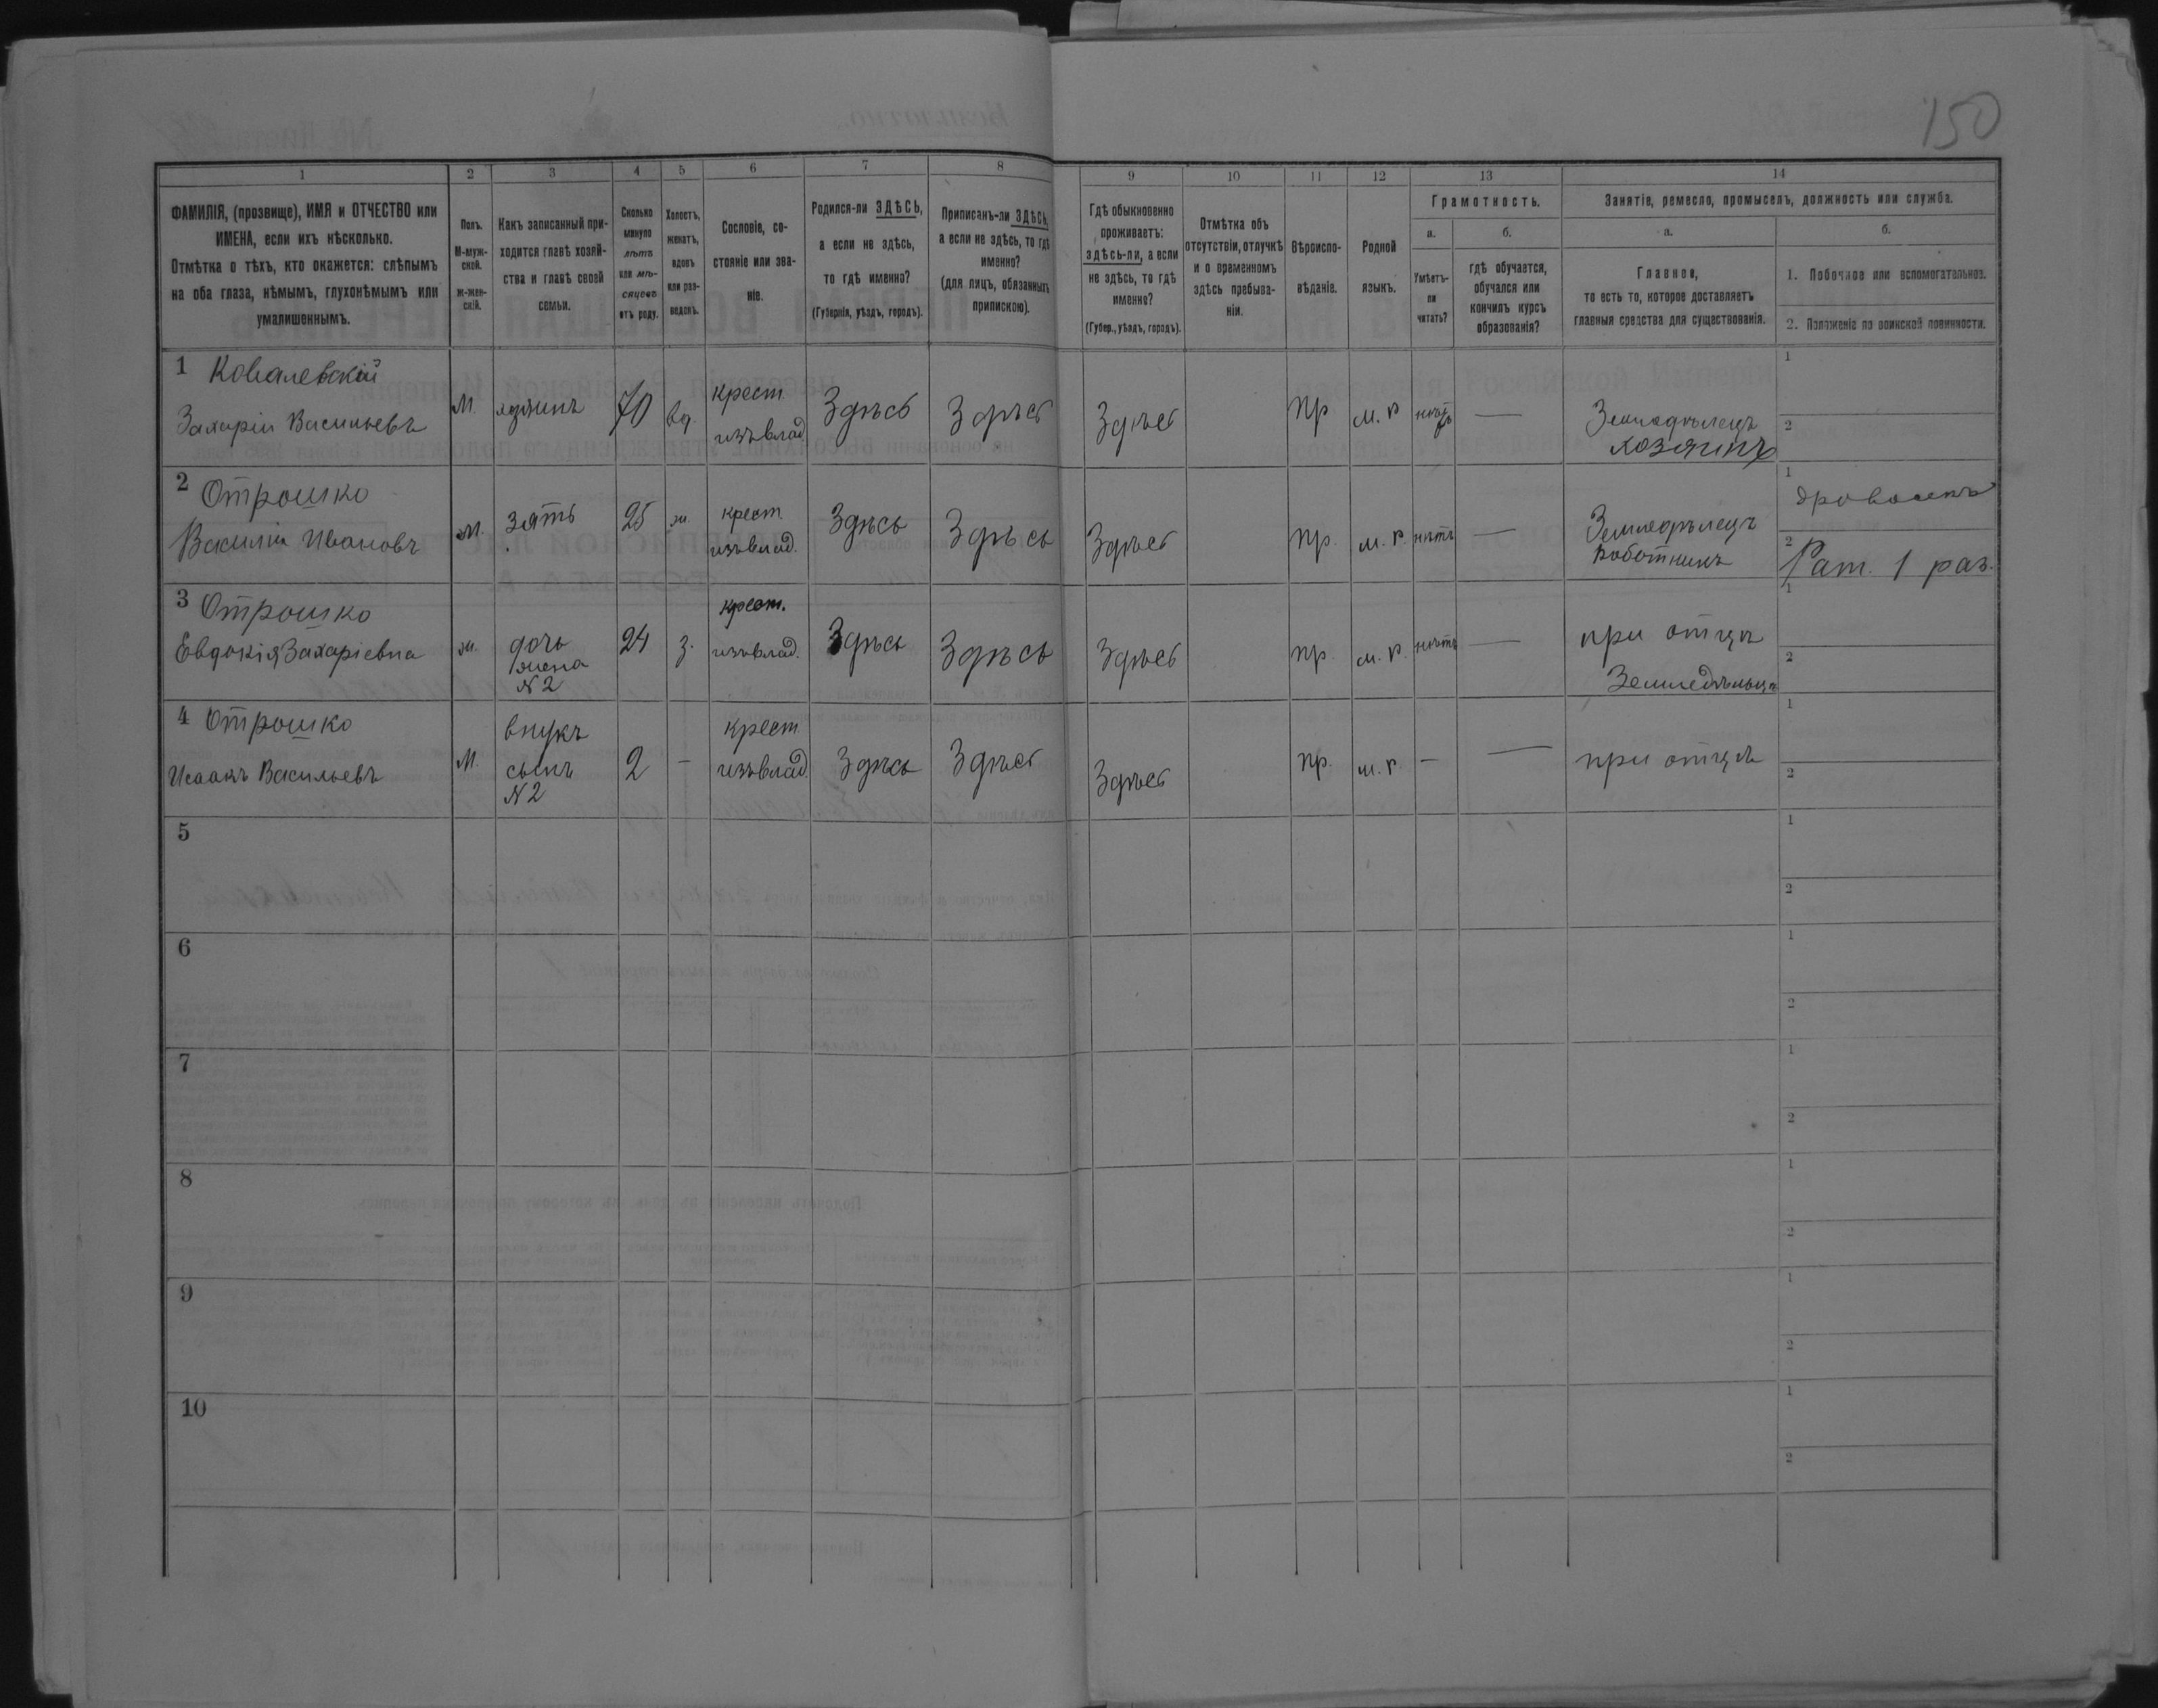 150
1 2 3 4 5 6 7 8 9 10 11 12 13 14
ФАМИЛІЯ, (прозвище), ИМЯ и ОТЧЕСТВО или
ИМЕНА, если ихъ нѣсколько.
Отмѣтка о тѣхъ, кто окажется: слѣпымъ
на оба глаза, нѣмымъ, глухонѣмымъ или
умалишеннымъ.
Полъ.
М-муж-
ской.
ж-жен-
скій.
Какъ записанный при-
ходится главѣ хозяй-
ства и главѣ своей
семьи.
Сколько
минуло
лѣтъ
или мѣ-
сяцевъ
отъ роду.
Холостъ,
женатъ,
вдовъ
или раз-
веденъ.
Сословіе, со-
стояніе или зва-
ніе.
Родился-ли ЗДѢСЬ,
а если не здѣсь,
то гдѣ именно?
(Губернія, уѣздъ, городъ).
Приписанъ-ли ЗДѢСЬ,
а если не здѣсь, то гдѣ
именно?
(для лицъ, обязанныхъ
припискою).
Гдѣ обыкновенно
проживаетъ:
здѣсь-ли, а если
не здѣсь, то гдѣ
именно?
(Губер., уѣздъ, городъ).
Отмѣтка объ
отсутствіи, отлучкѣ
и о временномъ
здѣсь пребыва-
ніи.
Вѣроиспо-
вѣданіе.
Родной
языкъ.
Грамотность.
а.
Умѣетъ-
ли
читать?
б.
гдѣ обучается,
обучался или
кончилъ курсъ
образованія?
Занятіе, ремесло, промыселъ, должность или служба.
а.
Главное,
то есть то, которое доставляетъ
главныя средства для существованія.
б.
1. Побочное или вспомогательное.
2. Положеніе по воинской повинности.
1 Ковалевскій
Захарій Васильевъ
М.
70
вд.
крест.
изъ влад.
Здѣсь
Здѣсь
Здѣсь
пр
м. р
нѣтъ
—
Земледѣлецъ
хозяинъ
1
2
2 Отрошко
Василій Ивановъ
м.
зять
25
ж.
крест.
изъ влад.
Здѣсь
Здѣсь
Здѣсь
пр.
м. р.
нѣтъ
—
Земледѣлецъ
Работникъ
1 дровосекъ
2 Рат. 1 раз.
3 Отрошко
Евдокія Захаріевна
ж.
дочь
жена
N 2
24
з.
крест.
изъ влад.
Здѣсь
Здѣсь
Здѣсь
пр.
м. р.
нѣтъ
—
при отцѣ
Земледѣльцѣ
1
2
4 Отрошко
Исаакъ Васильевъ
М.
внукъ
сынъ
N 2
2
—
крест.
изъ влад.
Здѣсь
Здѣсь
Здѣсь
пр.
м. р.
—
—
при отцѣ
1
2
5
1
2
6
1
2
7
1
2
8
1
2
9
1
2
10
1
2